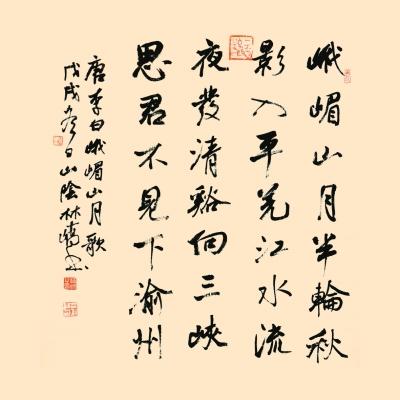 峨嵋山月半輪秋
影入平羌江水流
夜發清谿向三峽
思君不見下渝州
唐李白峨嵋山月歌
戊戌冬日山陰林